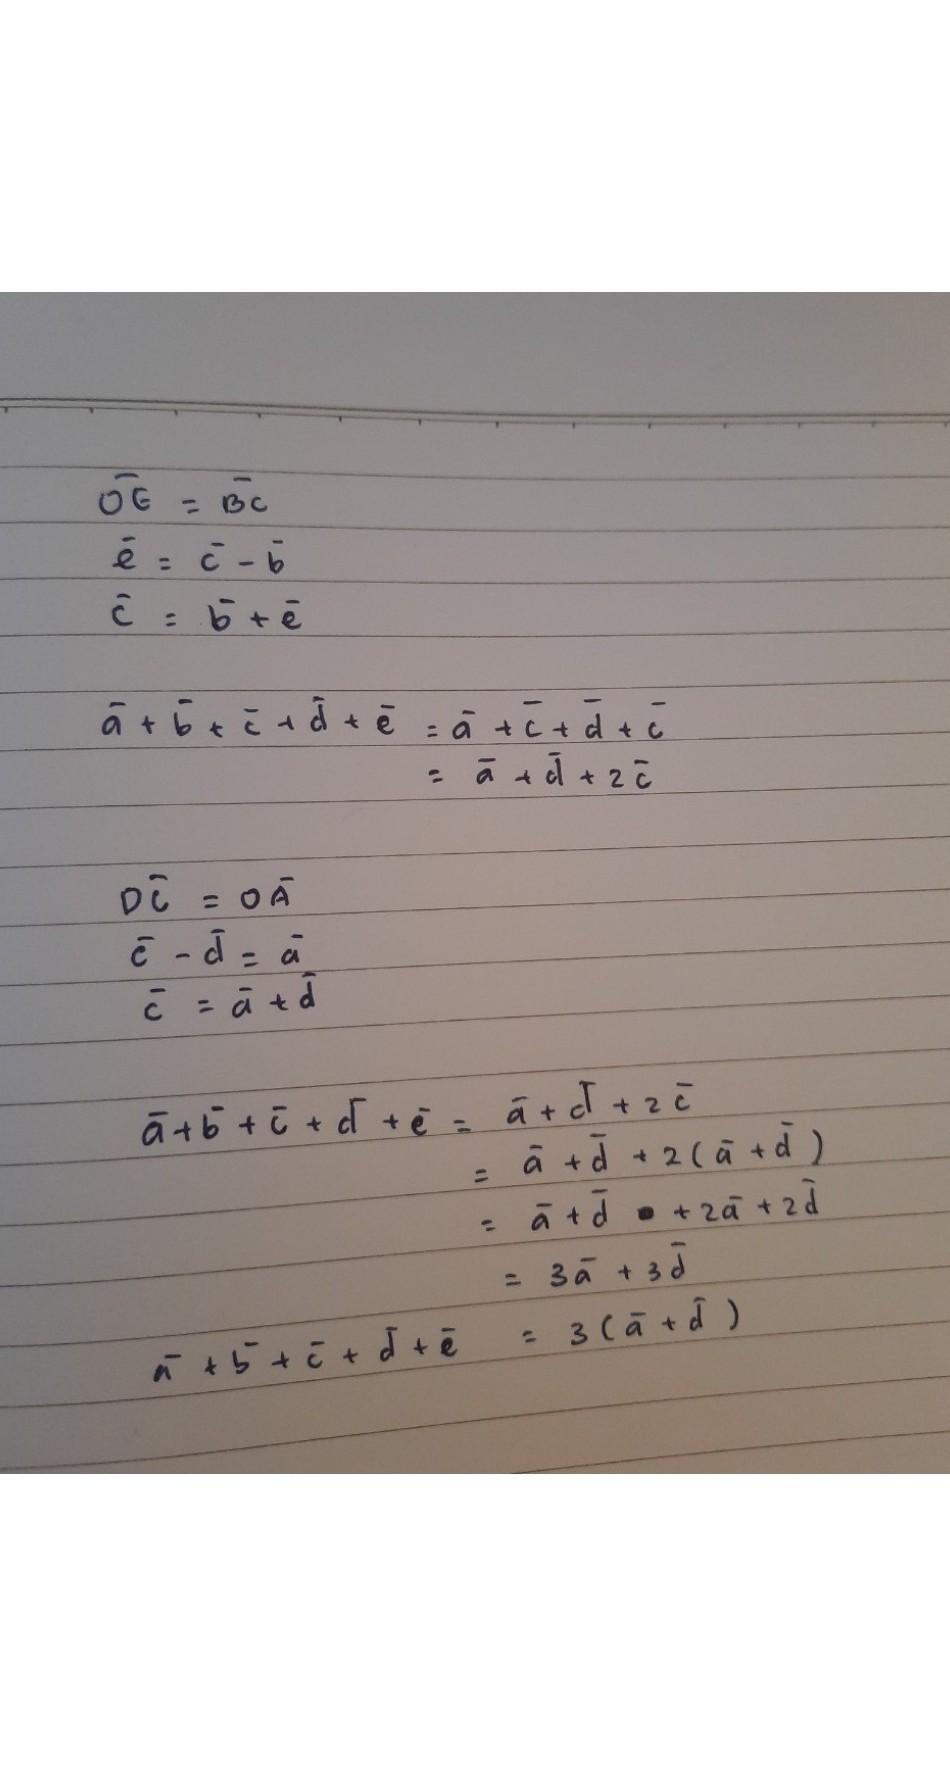 O̅E̅ = B̅C
e̅ = c̅ - b̅
c̅ = b̅ + e̅
a̅ + b̅ + c̅ + d̅ + e̅ = a̅ + c̅ + d̅ + c̅
= a̅ + d̅ + 2c̅
DC̅ = OA̅
c̅ - d̅ = a̅
c̅ = a̅ + d̅
a̅ + b̅ + c̅ + d̅ + e̅ = a̅ + d̅ + 2c̅
= a̅ + d̅ + 2(a̅ + d̅)
= a̅ + d̅ + 2a̅ + 2d̅
= 3a̅ + 3d̅
a̅ + b̅ + c̅ + d̅ + e̅ = 3(a̅ + d̅)